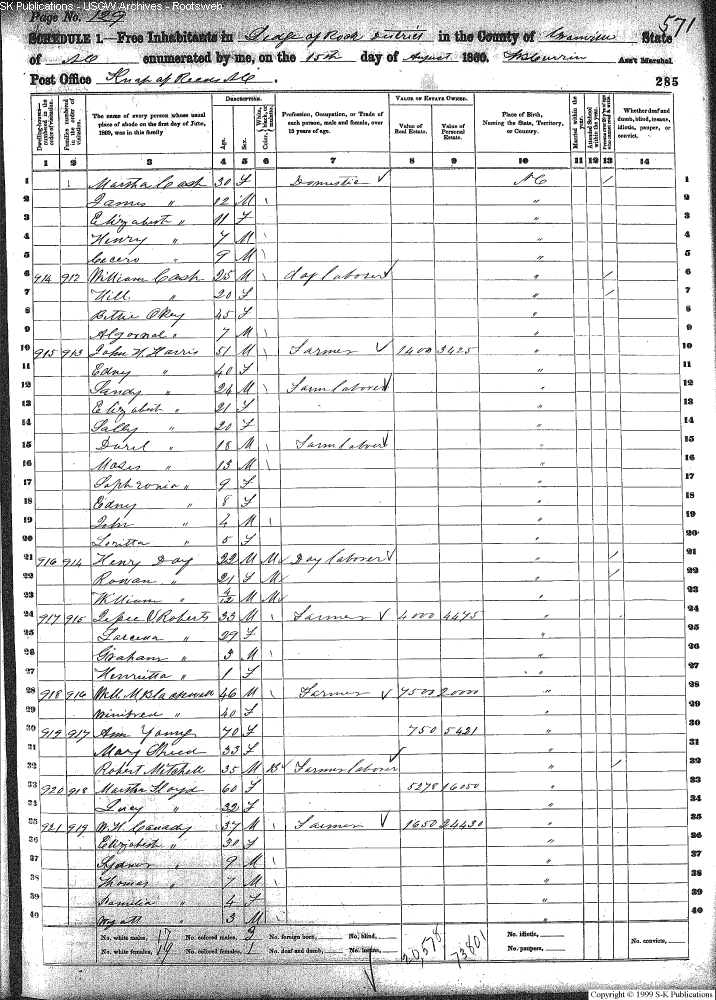 SK Publications - USGW Archives - Rootsweb
Page No. 129
571
SCHEDULE 1.—Free Inhabitants in Ledge of Rock District in the County of Granville State
of NC enumerated by me, on the 15th day of August 1860. Ass't Marshal.
Post Office Knap of Reeds NC.
285
Dwelling-houses—numbered in the order of visitation.
Families numbered in the order of visitation.
The name of every person whose usual place of abode on the first day of June, 1860, was in this family
DESCRIPTION.
Age.
Sex.
Color, White, black, or mulatto.
Profession, Occupation, or Trade of each person, male and female, over 15 years of age.
VALUE OF ESTATE OWNED.
Value of Real Estate.
Value of Personal Estate.
Place of Birth, Naming the State, Territory, or Country.
Married within the year.
Attended School within the year.
Whether deaf and dumb, blind, insane, idiotic, pauper, or convict.
1 2 3 4 5 6 7 8 9 10 11 12 13 14
1 1 Martha Cash 30 F Domestic ✓ NC / 1
2 James " 12 M \ " 2
3 Elizabeth " 11 F " 3
4 Henry " 7 M \ " 4
5 Cicero " 9 M \ " 5
6 914 912 William Cash 25 M \ day laborer ✓ " / 6
7 Hill " 20 F " / 7
8 Bettie Okey 45 F " 8
9 " 7 M \ " 9
10 915 913 John H. Harris 51 M \ Farmer ✓ 1400 3425 " 10
11 Edny " 40 F " 11
12 Sandy " 24 M \ Farm laborer ✓ " 12
13 Elizabeth " 21 F " 13
14 Sally " 20 F " 14
15 " 18 M Farm laborer ✓ " 15
16 Moses " 13 M \ " 16
17 Sophronia " 9 F " 17
18 Edny " 8 F " 18
19 John " 4 M \ " 19
20 Loritta " 5 F " 20
21 916 914 Henry Day 22 M M ✓ Day laborer ✓ " / 21
22 Rowan " 21 F M ✓ " / 22
23 William " /12 M M ✓ " 23
24 917 915 Roberts 33 M \ Farmer ✓ 4000 4475 " 24
25 " 29 F " 25
26 Graham " 3 M \ " 26
27 Henrietta " 1 F " 27
28 918 916 Will. M Blackwell 46 M \ Farmer ✓ 7500 2000 " 28
29 Winifred " 40 F " 29
30 919 917 Ann Young 70 F 750 5421 " 30
31 Mary 33 F " 31
32 Robert Mitchell 35 M B ✓ Farmer laborer ✓ " / 32
33 920 918 Martha Floyd 60 F 5278 16050 " 33
34 Lucy " 32 F " 34
35 921 919 W. H. Canady 37 M \ Farmer ✓ 1650 24430 " 35
36 Elizabeth " 30 F " 36
37 Sydner " 9 M \ " 37
38 Thomas " 7 M \ " 38
39 " 4 F " 39
40 Wyatt " 3 M \ " 40
No. white males, 17 No. colored males, 3 No. foreign born, No. blind, 20,578 73801 No. idiotic, No. convicts,
No. white females, 19 No. colored females, 1 No. deaf and dumb, No. insane, No. paupers,
Copyright © 1999 S-K Publications